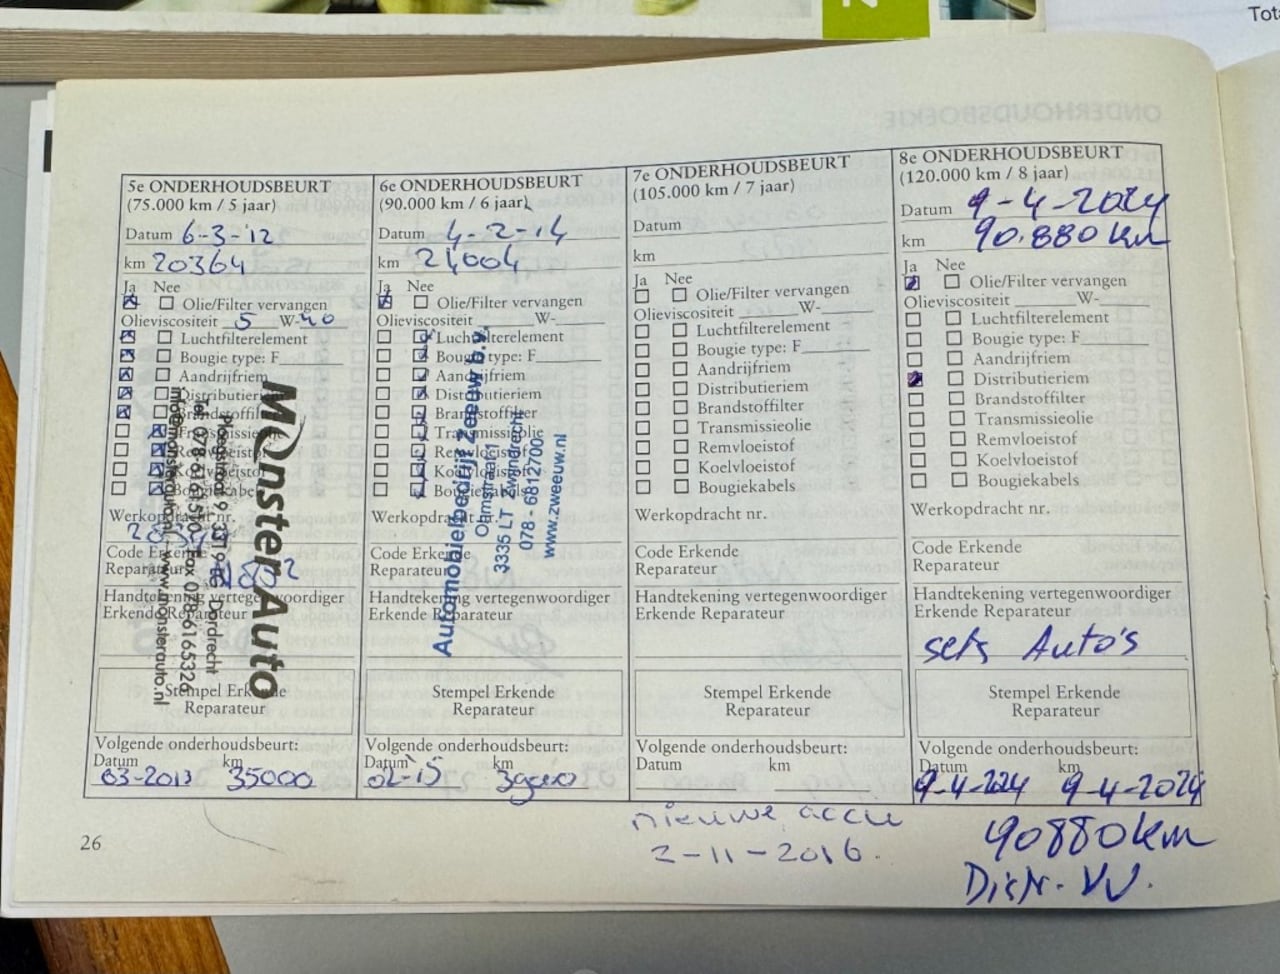 Tota
5e ONDERHOUDSBEURT
(75.000 km / 5 jaar)
Datum 6-3-'12
km 20364
Ja Nee
Olie/Filter vervangen
Olieviscositeit 5 W-40
Luchtfilterelement
Bougie type: F
Aandrijfriem
Distributieriem
Brandstoffilter
Transmissieolie
Remvloeistof
Koelvloeistof
Bougiekabels
Werkopdracht nr.
Code Erkende
Reparateur
Handtekening vertegenwoordiger
Erkende Reparateur
Monster Auto
Dordrecht
Fax 078-6165326
www.monsterauto.nl
Stempel Erkende
Reparateur
Volgende onderhoudsbeurt:
Datum km
03-2013 35000
6e ONDERHOUDSBEURT
(90.000 km / 6 jaar)
Datum 4-2-14
km 24004
Ja Nee
Olie/Filter vervangen
Olieviscositeit W-
Luchtfilterelement
Bougie type: F
Aandrijfriem
Distributieriem
Brandstoffilter
Transmissieolie
Remvloeistof
Koelvloeistof
Bougiekabels
Werkopdracht nr.
Code Erkende
Reparateur
Handtekening vertegenwoordiger
Erkende Reparateur
Automobielbedrijf Zeeuw b.v.
Ohmstraat 1
3335 LT Zwijndrecht
078 - 6812700
www.zweeuw.nl
Stempel Erkende
Reparateur
Volgende onderhoudsbeurt:
Datum km
02-15
7e ONDERHOUDSBEURT
(105.000 km / 7 jaar)
Datum
km
Ja Nee
Olie/Filter vervangen
Olieviscositeit W-
Luchtfilterelement
Bougie type: F
Aandrijfriem
Distributieriem
Brandstoffilter
Transmissieolie
Remvloeistof
Koelvloeistof
Bougiekabels
Werkopdracht nr.
Code Erkende
Reparateur
Handtekening vertegenwoordiger
Erkende Reparateur
Stempel Erkende
Reparateur
Volgende onderhoudsbeurt:
Datum km
nieuwe accu
2-11-2016.
8e ONDERHOUDSBEURT
(120.000 km / 8 jaar)
Datum 9-4-2024
km 90.880 km
Ja Nee
Olie/Filter vervangen
Olieviscositeit W-
Luchtfilterelement
Bougie type: F
Aandrijfriem
Distributieriem
Brandstoffilter
Transmissieolie
Remvloeistof
Koelvloeistof
Bougiekabels
Werkopdracht nr.
Code Erkende
Reparateur
Handtekening vertegenwoordiger
Erkende Reparateur
sets Auto's
Stempel Erkende
Reparateur
Volgende onderhoudsbeurt:
Datum km
9-4-2024 9-4-2024
90880 km
Distr. VV.
26